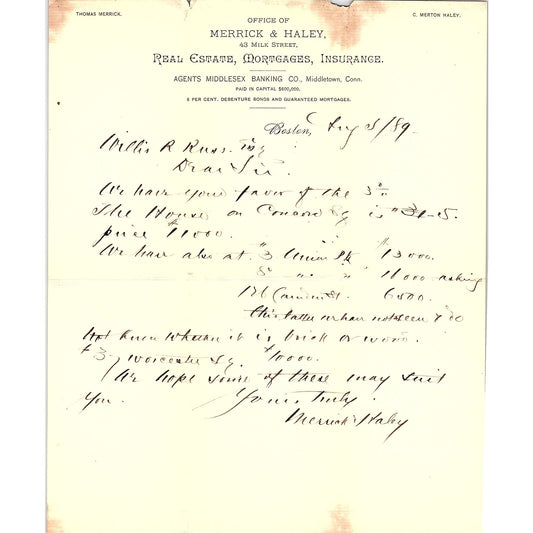 THOMAS MERRICK.
C. MERTON HALEY.
OFFICE OF
MERRICK & HALEY,
43 MILK STREET,
REAL ESTATE, MORTGAGES, INSURANCE.
AGENTS MIDDLESEX BANKING CO., Middletown, Conn.
PAID IN CAPITAL $600,000.
6 PER CENT. DEBENTURE BONDS AND GUARANTEED MORTGAGES.
Boston, /89
Willis R Russ. Esq
Dear Sir.
We have your favor of the 3"
The House on Concord Sq is
price $11000.
We have also at 3 Union Pk $13000.
8 " " 11000 asking
126 6500.
this latter we have not seen & do
not know whether it is brick or wood.
Worcester Sq. $10000.
We hope some of these may suit
you. Yours truly,
Merrick & Haley